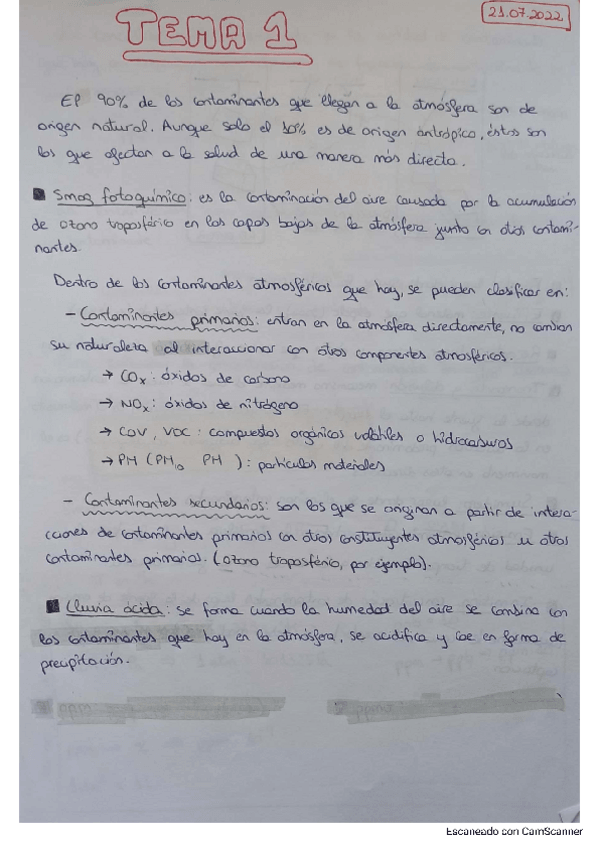 TEMA 1
21.07.2022
El 90% de los contaminantes que llegan a la atmósfera son de
origen natural. Aunque solo el 10% es de origen antrópico, éstos son
los que afectan a la salud de una manera más directa.
Smog fotoquímico: es la contaminación del aire causada por la acumulación
de ozono troposférico en las capas bajas de la atmósfera junto con otros contami-
nantes.
Dentro de los contaminantes atmosféricos que hay, se pueden clasificar en:
- Contaminantes primarios: entran en la atmósfera directamente, no cambian
su naturaleza al interaccionar con otros componentes atmosféricos.
→ COx: óxidos de carbono
→ NOx: óxidos de nitrógeno
→ COV, VOC: compuestos orgánicos volátiles o hidrocarburos
→ PM (PM10 PM ): partículas materiales
- Contaminantes secundarios: son los que se originan a partir de intera-
cciones de contaminantes primarios con otros constituyentes atmosféricos u otros
contaminantes primarios. (ozono troposférico, por ejemplo).
Lluvia ácida: se forma cuando la humedad del aire se combina con
los contaminantes que hay en la atmósfera, se acidifica y cae en forma de
precipitación.
Escaneado con CamScanner